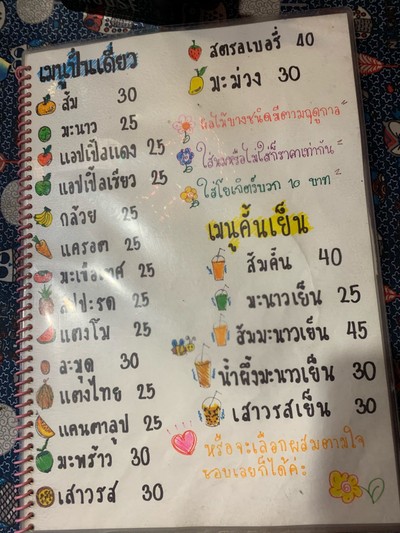 เมนูปั่นเดี่ยว
ส้ม 30
มะนาว 25
แอปเปิ้ลแดง 25
แอปเปิ้ลเขียว 25
กล้วย 25
แครอต 25
มะเขือเทศ 25
สัปปะรด 25
แตงโม 25
ละมุด 30
แตงไทย 25
แคนตาลูป 25
มะพร้าว 30
เสาวรส 30
สตรอเบอรี่ 40
มะม่วง 30
ผลไม้บางชนิดมีตามฤดูกาล
ใส่นมหรือไม่ใส่ก็ราคาเท่ากัน
ใส่โยเกิตร์บวก 10 บาท
เมนูคั้นเย็น
ส้มคั้น 40
มะนาวเย็น 25
ส้มมะนาวเย็น 45
น้ำผึ้งมะนาวเย็น 30
เสาวรสเย็น 30
หรือจะเลือกผสมตามใจ
ชอบเลยก็ได้ค่ะ